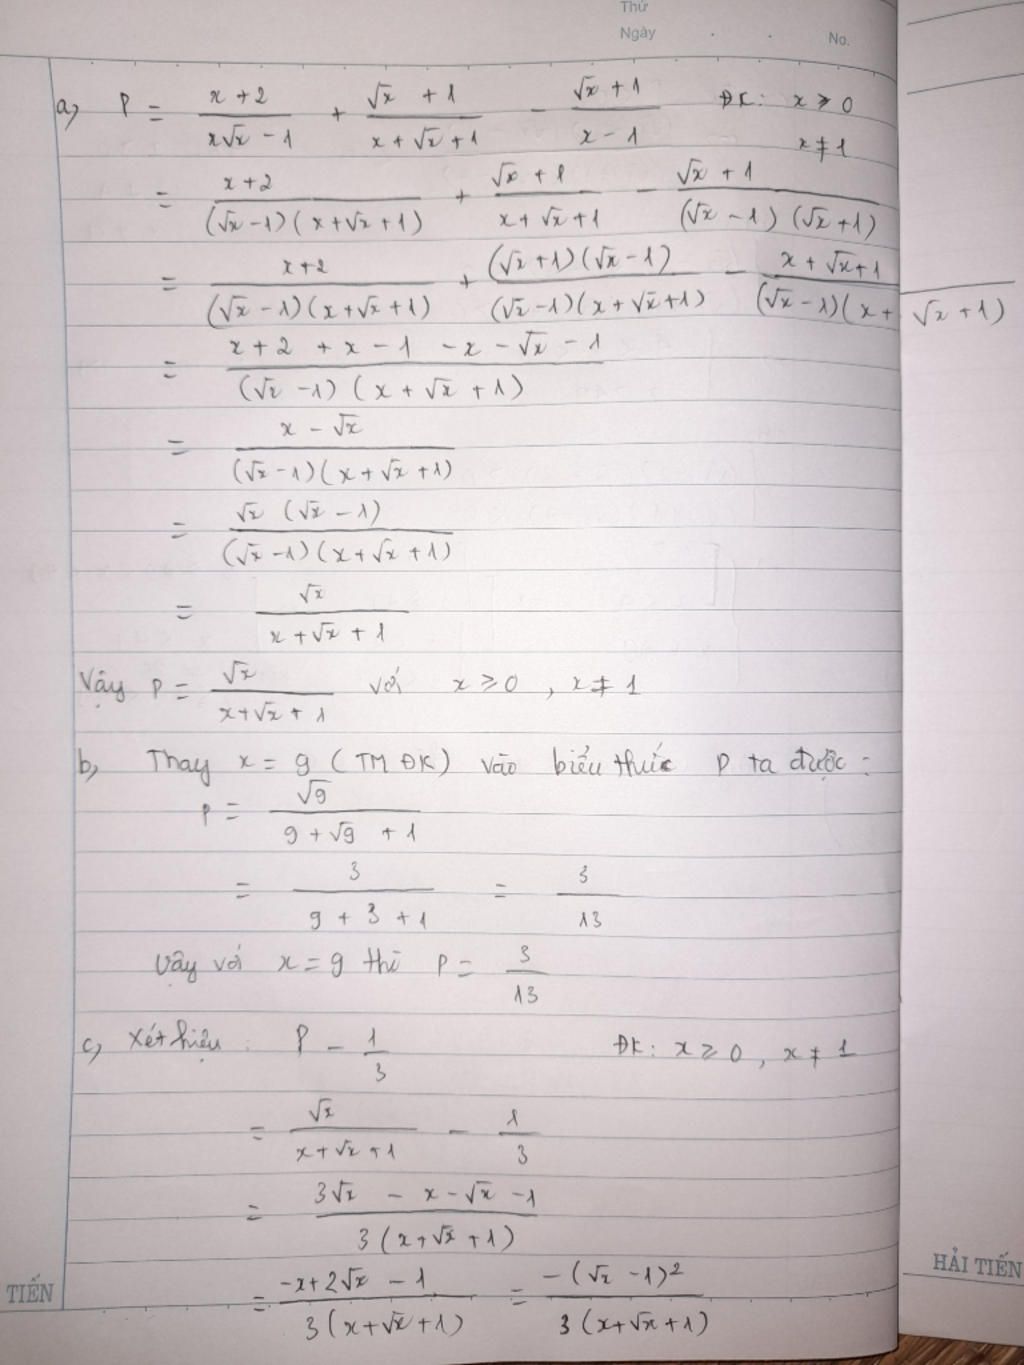 Thứ
Ngày . . No.
a) P = (x + 2)/(x√x - 1) + (√x + 1)/(x + √x + 1) - (√x + 1)/(x - 1) ĐK: x ≥ 0
x ≠ 1
= (x+2)/((√x - 1)(x + √x + 1)) + (√x + 1)/(x + √x + 1) - (√x + 1)/((√x - 1)(√x + 1))
= (x+2)/((√x - 1)(x + √x + 1)) + ((√x + 1)(√x - 1))/((√x - 1)(x + √x + 1)) - (x + √x + 1)/((√x - 1)(x + √x + 1))
= (x + 2 + x - 1 - x - √x - 1)/((√x - 1)(x + √x + 1))
= (x - √x)/((√x - 1)(x + √x + 1))
= (√x (√x - 1))/((√x - 1)(x + √x + 1))
= √x/(x + √x + 1)
Vậy P = √x/(x + √x + 1) với x ≥ 0 , x ≠ 1
b) Thay x = 9 (TM ĐK) vào biểu thức P ta được :
P = √9/(9 + √9 + 1)
= 3/(9 + 3 + 1) = 3/13
Vậy với x = 9 thì P = 3/13
c) Xét hiệu : P - 1/3 ĐK: x ≥ 0 , x ≠ 1
= √x/(x + √x + 1) - 1/3
= (3√x - x - √x - 1)/(3(x + √x + 1))
= (-x + 2√x - 1)/(3(x + √x + 1)) = (-(√x - 1)²)/(3(x + √x + 1))
TIẾN
HẢI TIẾN